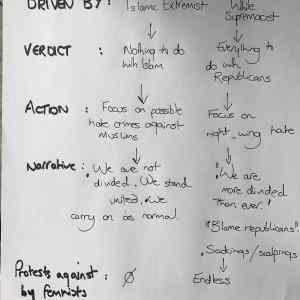 DRIVEN BY : Islamic Extremist White Supremacist
VERDICT : Nothing to do with Islam Everything to do with Republicans
ACTION : Focus on possible hate crimes against Muslims Focus on right wing hate
Narrative : "We are not divided. We stand united. We carry on as normal. "We are more divided than ever."
"Blame republicans".
Sackings/scalpings
Protests against by feminists : Ø Endless